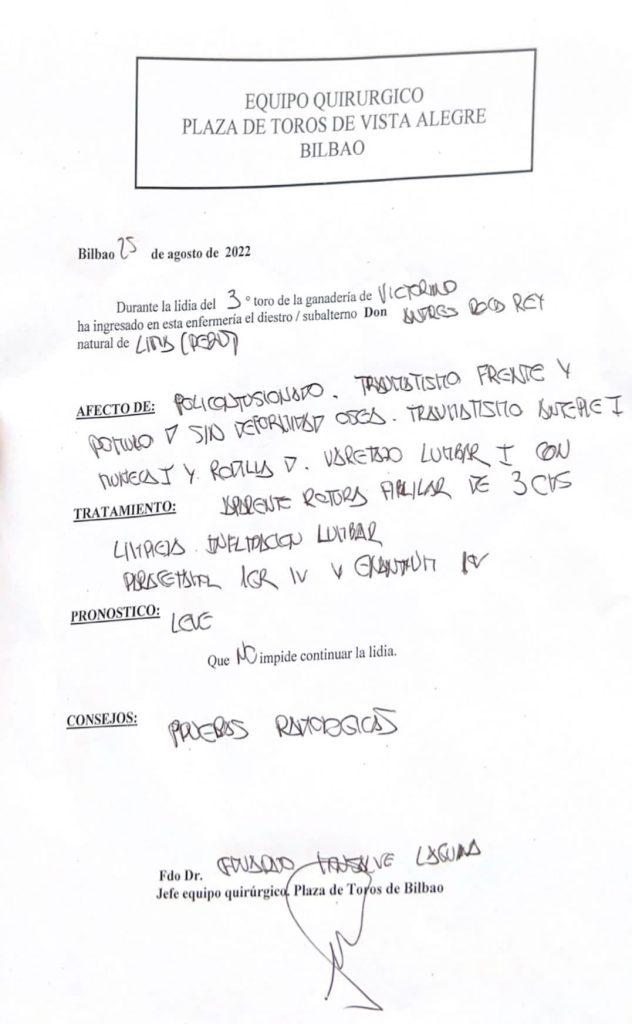 EQUIPO QUIRURGICO
PLAZA DE TOROS DE VISTA ALEGRE
BILBAO
Bilbao 25 de agosto de 2022
Durante la lidia del 3 º toro de la ganadería de VICTORINO
ha ingresado en esta enfermería el diestro / subalterno Don ANDRES ROCA REY
natural de LIMA (PERU)
AFECTO DE: POLICONTUSIONADO. TRAUMATISMO FRENTE Y
POMULO D SIN DEFORMIDAD OSEA. TRAUMATISMO I
MUÑECA I Y RODILLA D. VARETAZO LUMBAR I CON
TRATAMIENTO: APARENTE ROTURA FIBRILAR DE 3 CMS
LIMPIEZA. INFILTRACION LUMBAR
PARACETAMOL 1GR IV Y ENANTYUM IV
PRONOSTICO: LEVE
Que NO impide continuar la lidia.
CONSEJOS: PRUEBAS RADIOLOGICAS
Fdo Dr. LAGUNA
Jefe equipo quirúrgico. Plaza de Toros de Bilbao